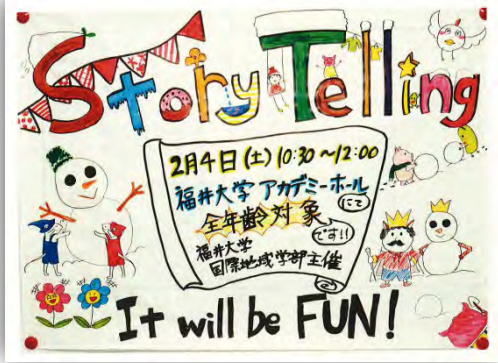 Story Telling
2月4日(土) 10:30~12:00
福井大学 アカデミーホール
にて
全年齢対象
です!!
福井大学
国際地域学部主催
It will be FUN!